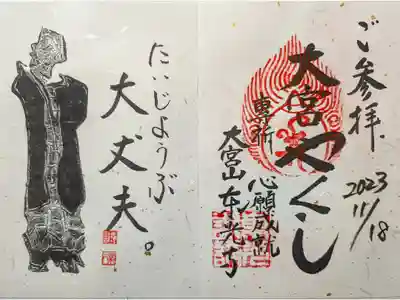 ご参拝
2023
11/18
大宮やくし
専祈
心願成就
大宮山東光寺
たいじようぶ
大丈夫。